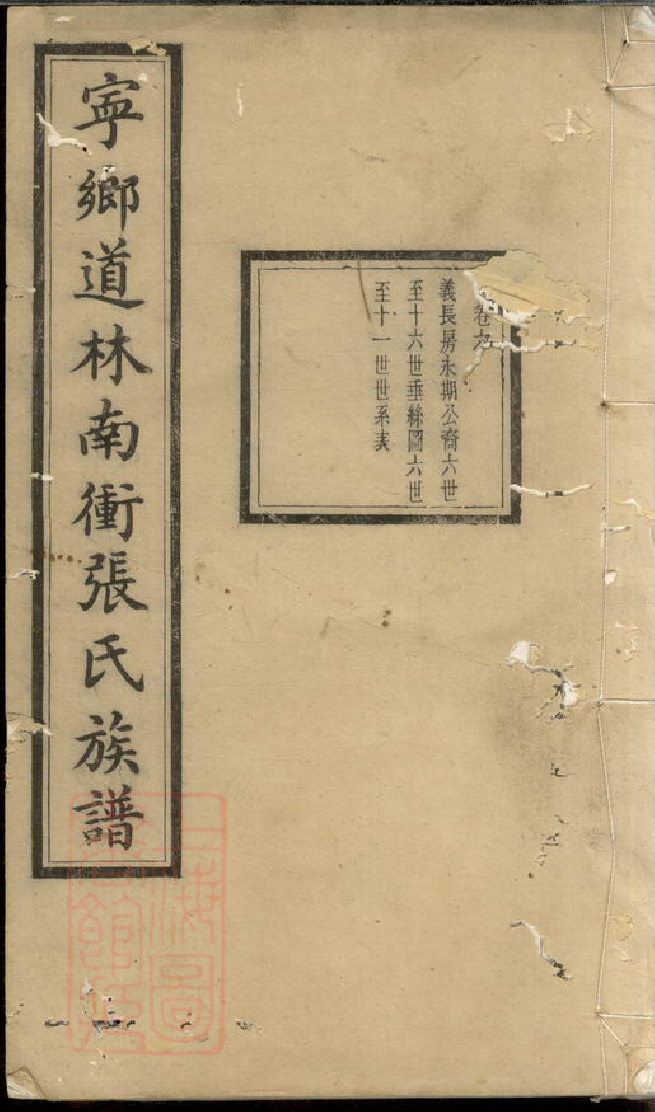 寧鄉道林南衝張氏族譜
卷六
義長房永期公裔六世
至十六世垂絲圖六世
至十一世世系表
上海圖
書館藏